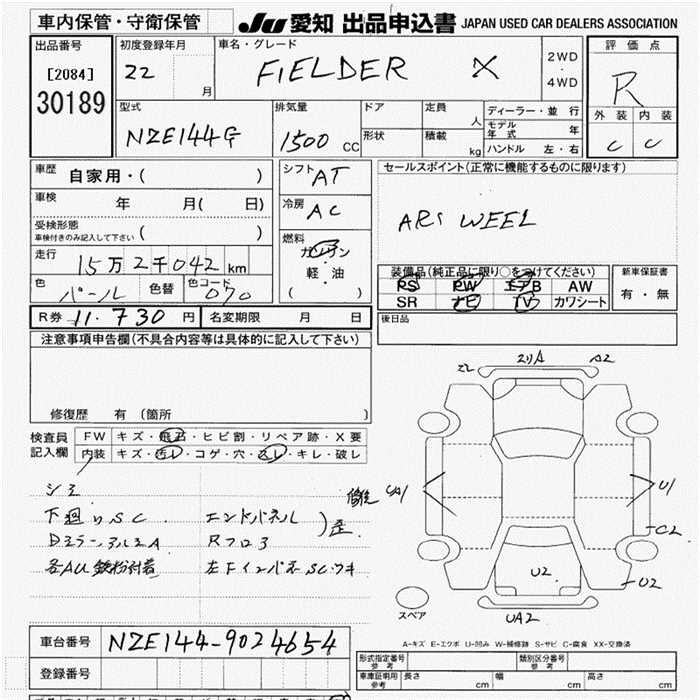 車内保管・守衛保管
JU 愛知 出品申込書 JAPAN USED CAR DEALERS ASSOCIATION
出品番号
[2084]
30189
初度登録年月
22
月
車名・グレード
FIELDER X
2WD
・
4WD
評価点
R
外装 内装
C C
型式
NZE144G
排気量
1500 CC
ドア
形状
定員
人
積載
kg
ディーラー・並行
モデル年式 年
ハンドル 左・右
車歴
自家用・( )
車検 年 月( 日)
受検形態
車検付きのみ記入して下さい ( )
走行 15万2千042 km
色 パール 色替 色コード 070
シフト AT
冷房 AC
燃料
ガソリン
軽・油
( )
セールスポイント(正常に機能するものに限ります)
装備品(純正品に限り○をつけてください)
PS PW エアB AW
SR ナビ TV カワシート
新車保証書
有・無
R券 11.730 円 名変期限 月 日
後日品
注意事項申告欄(不具合内容等は具体的に記入して下さい)
修復歴 有 (箇所 )
検査員
記入欄
FW キズ・飛石・ヒビ割・リペア跡・X要
内装 キズ・汚レ・コゲ・穴・スレ・キレ・破レ
シミ
下廻りSC エンドパネル
A2
U1
C2
U2
U2
UA2
スペア
A-キズ E-エクボ U-凹み W-補修跡 S-サビ C-腐食 XX-交換済
車台番号 NZE144-9024654
登録番号
形式指定番号
参考
類別区分番号
参考
車庫証明用
参考
長さ cm 幅 cm 高さ cm